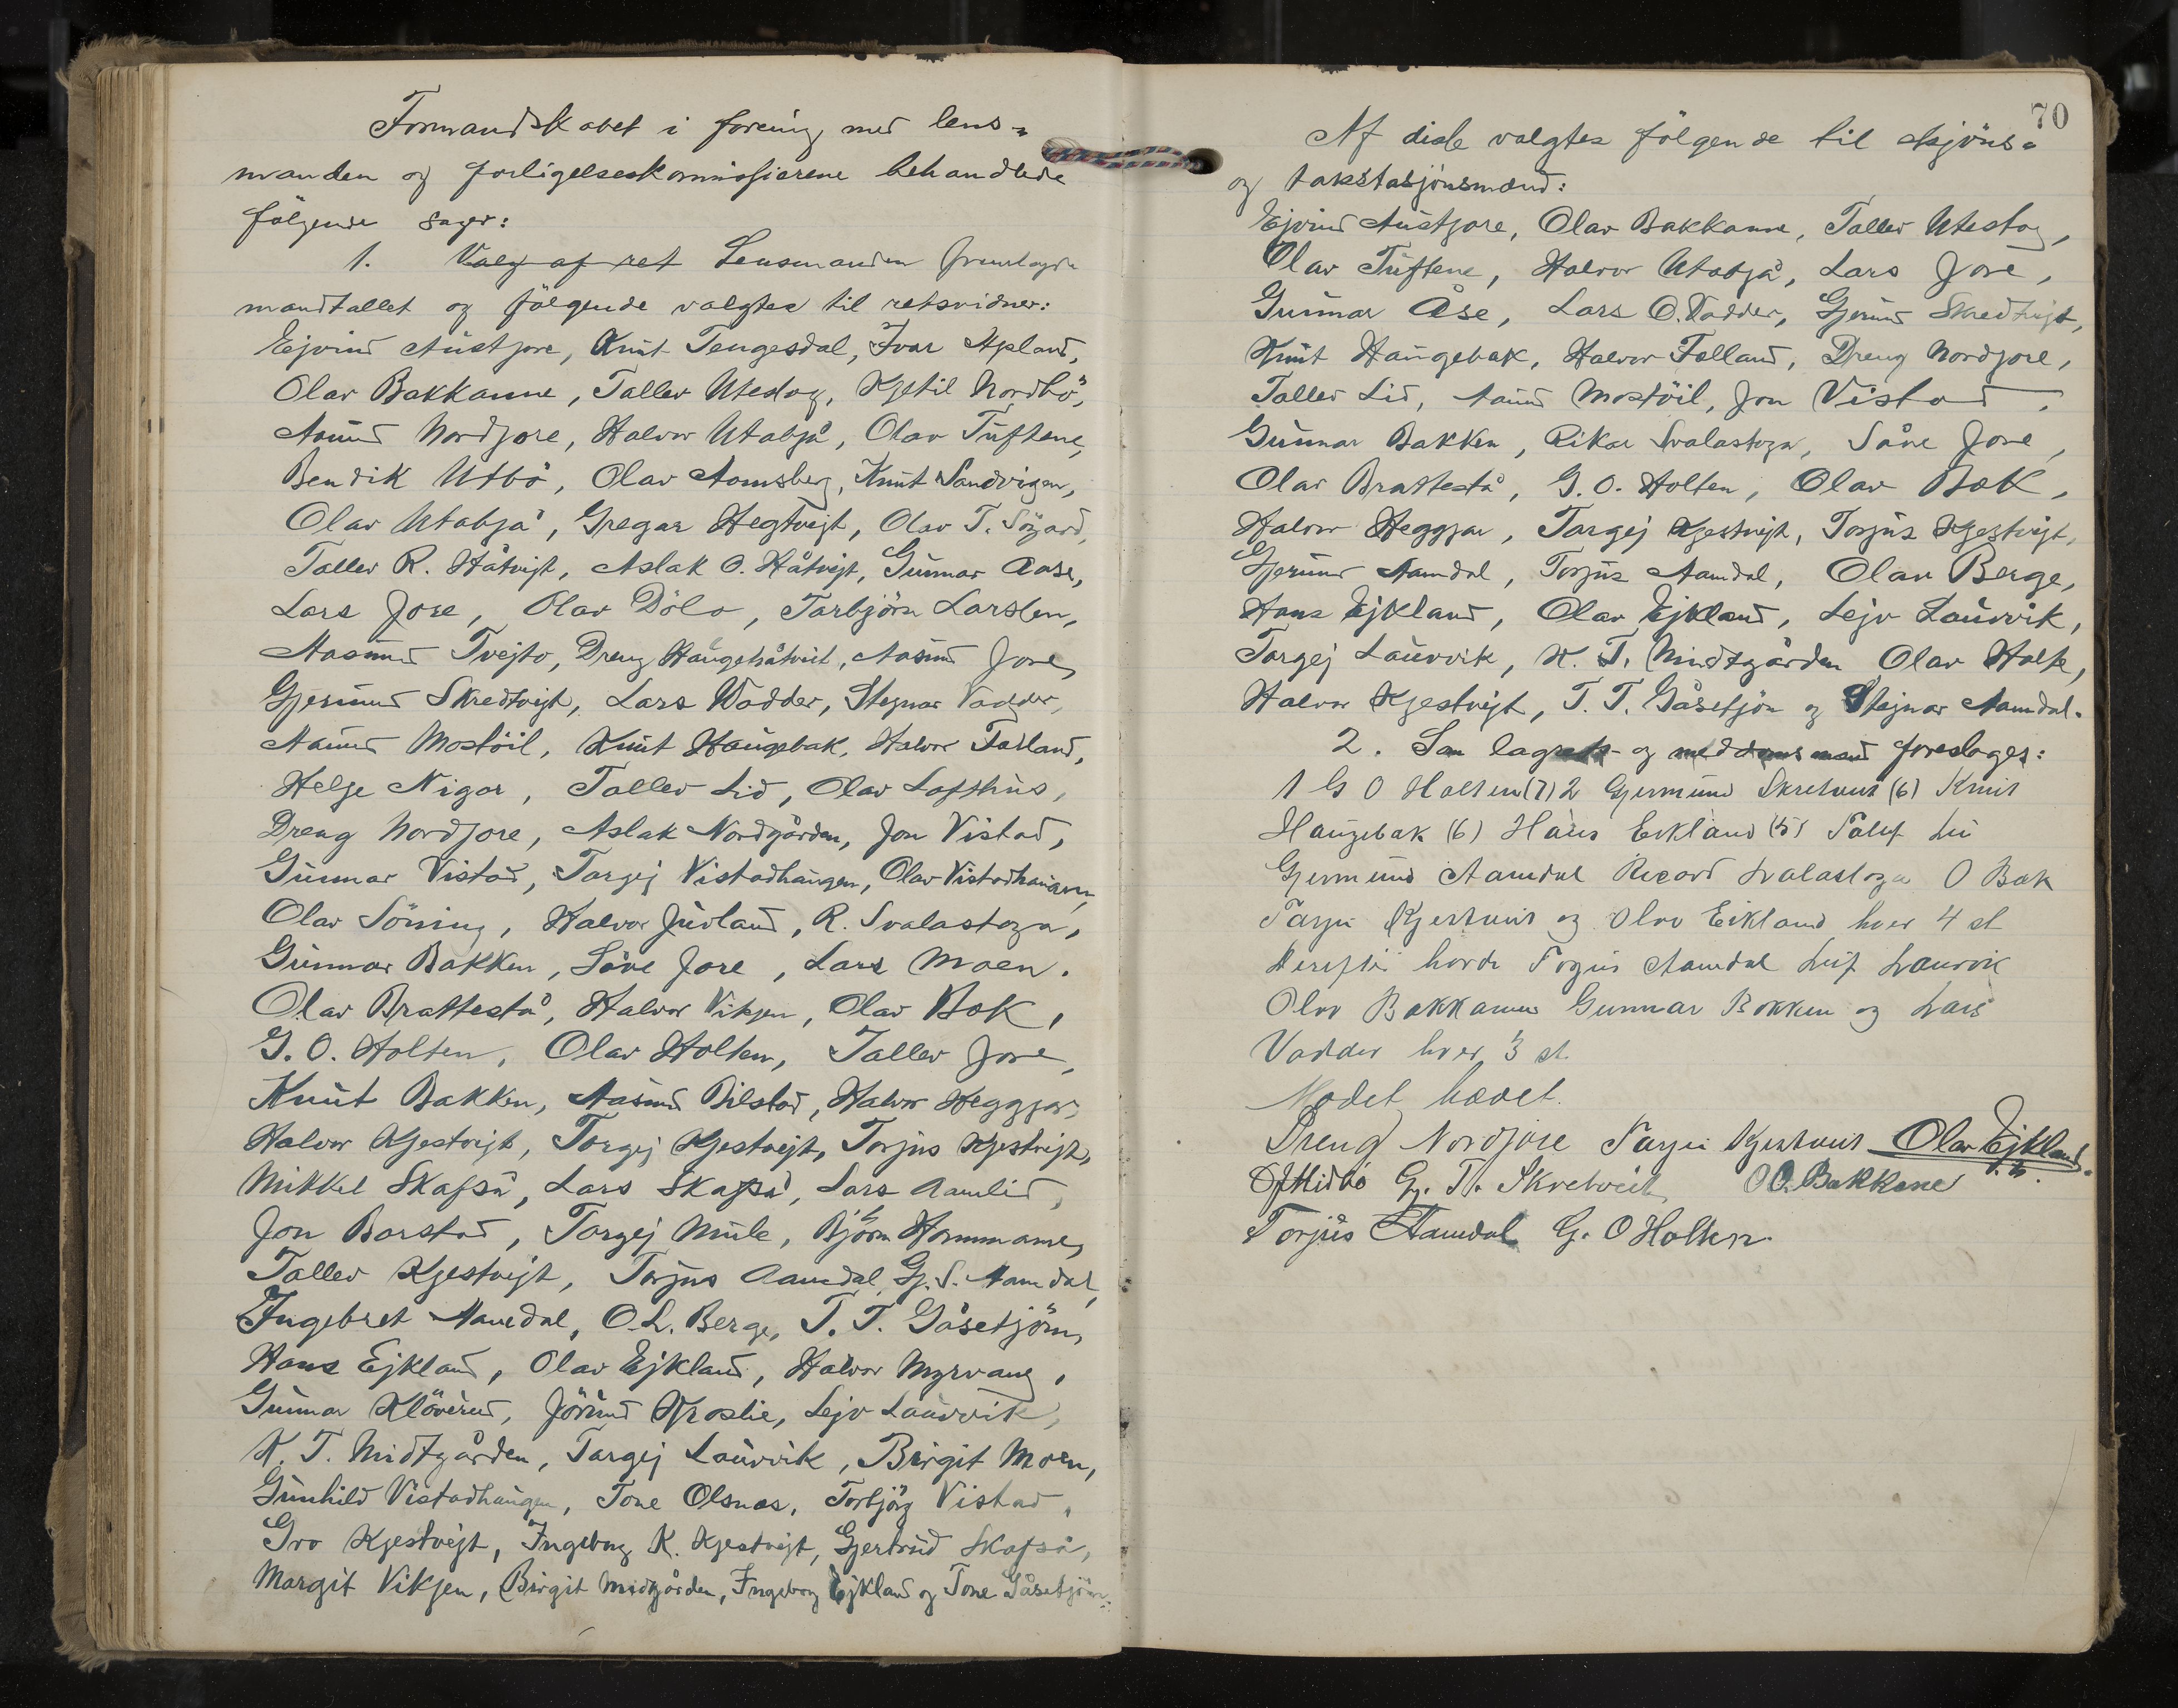 Formandskabet i forening med lens-
manden og forligelseskommissierene behandlede
følgende sager:
1. Valg af ret Lensmanden fremlagde
mandtallet og følgende valgtes til retsvidner:
Ejvind Austjore, Knut Tengesdal, Ivar Apland,
Olav Bakkanne, Tallev Utestog, Kjetil Nordbö,
Aanund Nordjore, Halvor Utabjå, Olav Tuftene,
Bendik Utbö, Olav Aamsberg, Knut Sandvigen,
Olav Utabjå, Gregar Hegtveit, Olav T. Sögard,
Tallev R. Håtvejt, Aslak O. Håtvejt, Gunnar Aase,
Lars Jore, Olav Dölo, Tarbjörn Larsten,
Aasmund Tvejto, Dreng Haugehåtveit, Aasmund Jore,
Gjermund Skredtvejt, Lars Vadder, Stegnar Vadder,
Aanund Mostöil, Knut Haugebak, Halvor Falland,
Helge Nigar, Tallev Lid, Olav Lofthus,
Dreng Nordjore, Aslak Nordgården, Jon Vistad,
Gunnar Vistad, Targej Vistadhaugen, Olav Vistadhaugen,
Olav Söning, Halvor Juvland, R. Svalastoga,
Gunnar Bakken, Såve Jore, Lars Moen.
Olav Brattestå, Halvor Vikjen, Olav Bøk,
G. O. Holten, Olav Holten, Tallev Jore,
Knut Bakken, Aasmund Bilstad, Halvor Heggjar,
Halvor Kjestvejt, Torgej Kjestvejt, Torjus Kjestvejt,
Mikkel Skafså, Lars Skafså, Lars Aamlid,
Jon Barstad, Torgej Mule, Björn Hommane,
Tallev Kjestvejt, Torjus Aamdal, Gj. S. Aamdal,
Ingebret Aamdal, O. L. Berge, T. T. Gåsetjörn,
Hans Ejkland, Olav Ejkland, Halvor Myrvang,
Gunnar Klöverud, Jörund Kroslie, Lejv Lauvvik,
K. T. Midtgården, Targej Lauvvik, Birgit Moen,
Gunhild Vistadhaugen, Tone Olsnæs, Torbjörg Vistad,
Gro Kjestvejt, Ingeborg K. Kjestvejt, Gjertrud Skafså,
Margit Vikjen, Birgit Midgården, Ingeborg Ejkland og Tone Gåsetjörn.
70
Af disse valgtes følgende til skjöns-
og takstasjonsmænd:
Ejvind Austjore, Olav Bakkanne, Tallev Utestog,
Olav Tuftene, Halvor Utabjå, Lars Jore,
Gunnar Åse, Lars O. Vadder, Gjermund Skredtvejt,
Knut Haugebak, Halvor Falland, Dreng Nordjore,
Tallev Lid, Aanund Mostöil, Jon Vistad,
Gunnar Bakken, Rikar Svalastoga, Såve Jore,
Olav Brattestå, G. O. Holten, Olav Bøk,
Halvor Heggjar, Targej Kjestvejt, Torjus Kjestvejt,
Gjermund Aamdal, Torjus Aamdal, Olav Berge,
Hans Ejkland, Olav Ejkland, Lejv Lauvvik,
Torgej Lauvvik, K. T. Midtgården, Olav Holte,
Halvor Kjestvejt, T. T. Gåsetjön og Stejnar Aamdal.
2. Som lagrets- og meddomsmænd foresloges:
1 G O Holten (7) 2 Gjermund Skretveit (6) Knut
Haugebak (6) Hans Eikland (5) Talef Lii
Gjermund Aamdal Ricard Svalastoga O Bøk
Targei Kjestveit og Olav Eikland hver 4 st
Derefter havde Torjus Aamdal Leif Lauvvik
Olav Bakkanne Gunnar Bakken og Lars
Vadder hver 3 st.
Mødet hævet.
Dreng Nordjore Targei Kjestveit Olav Ejkland.
O J Midbö Gj. T. Skretveit O O. Bakkane
Torjus Aamdal G. O Holten.